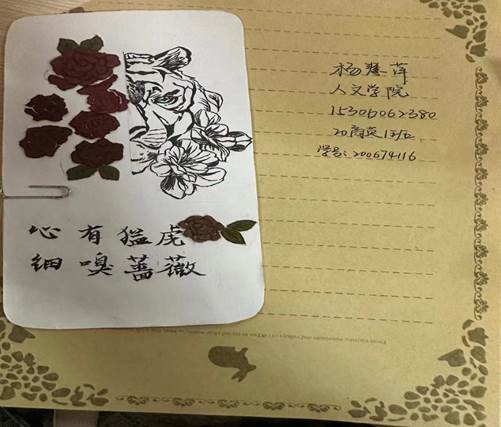 心有猛虎
细嗅蔷薇
杨慧萍
人文学院
15306062380
20商英1班
学号：200674116